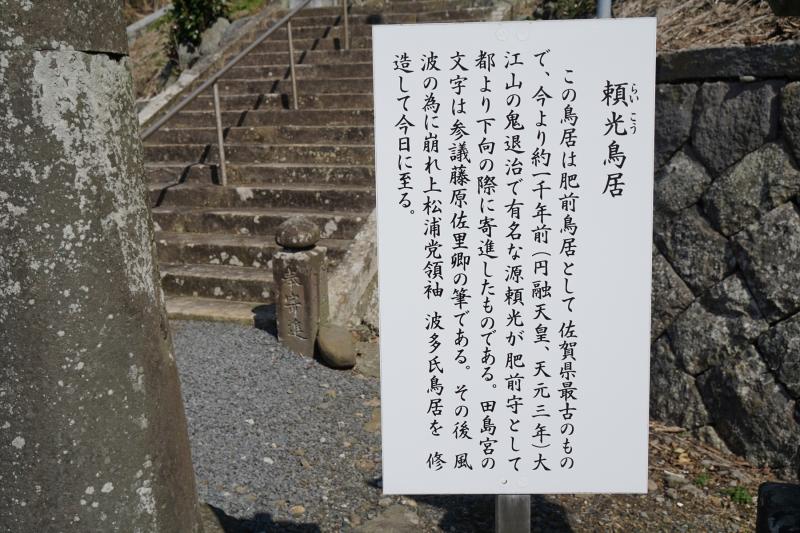 頼光鳥居
らいこう
この鳥居は肥前鳥居として佐賀県最古のもの
で、今より約一千年前(円融天皇、天元三年)大
江山の鬼退治で有名な源頼光が肥前守として
都より下向の際に寄進したものである。田島宮の
文字は参議藤原佐里卿の筆である。その後 風
波の為に崩れ上松浦党領袖 波多氏鳥居を 修
造して今日に至る。
奉寄進